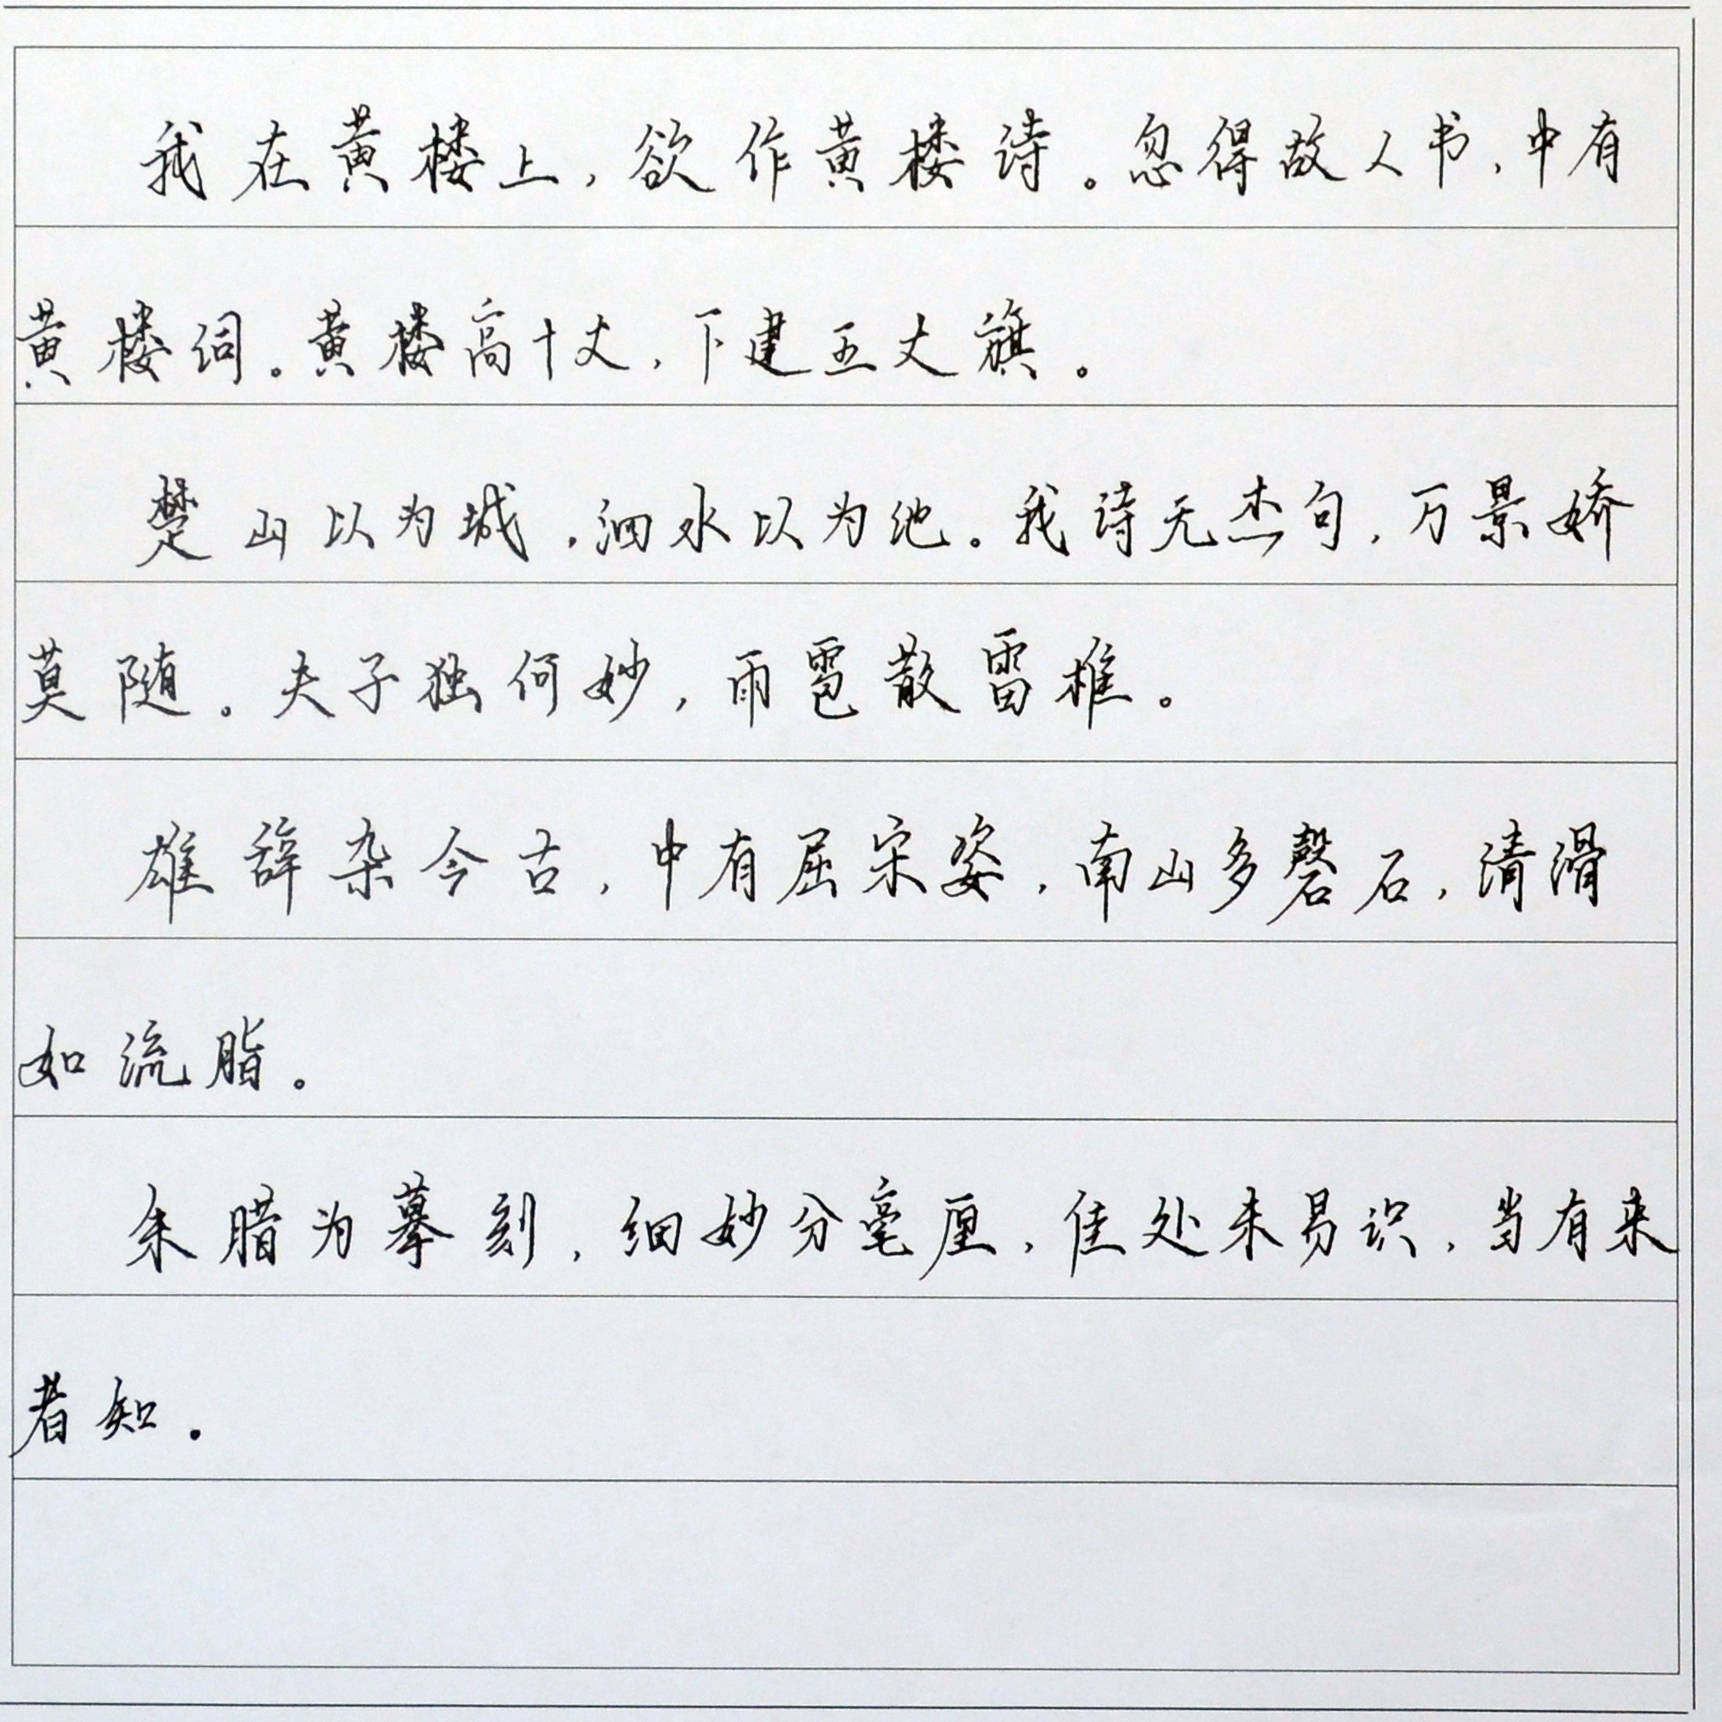 我在黄楼上，欲作黄楼诗。忽得故人书，中有
黄楼词。黄楼高十丈，下建五丈旗。
楚山以为城，泗水以为池。我诗无杰句，万景娇
莫随。夫子独何妙，雨雹散雷椎。
雄辞杂今古，中有屈宋姿，南山多磬石，清滑
如流脂。
朱腊为摹刻，细妙分毫厘，佳处未易识，当有来
者知。